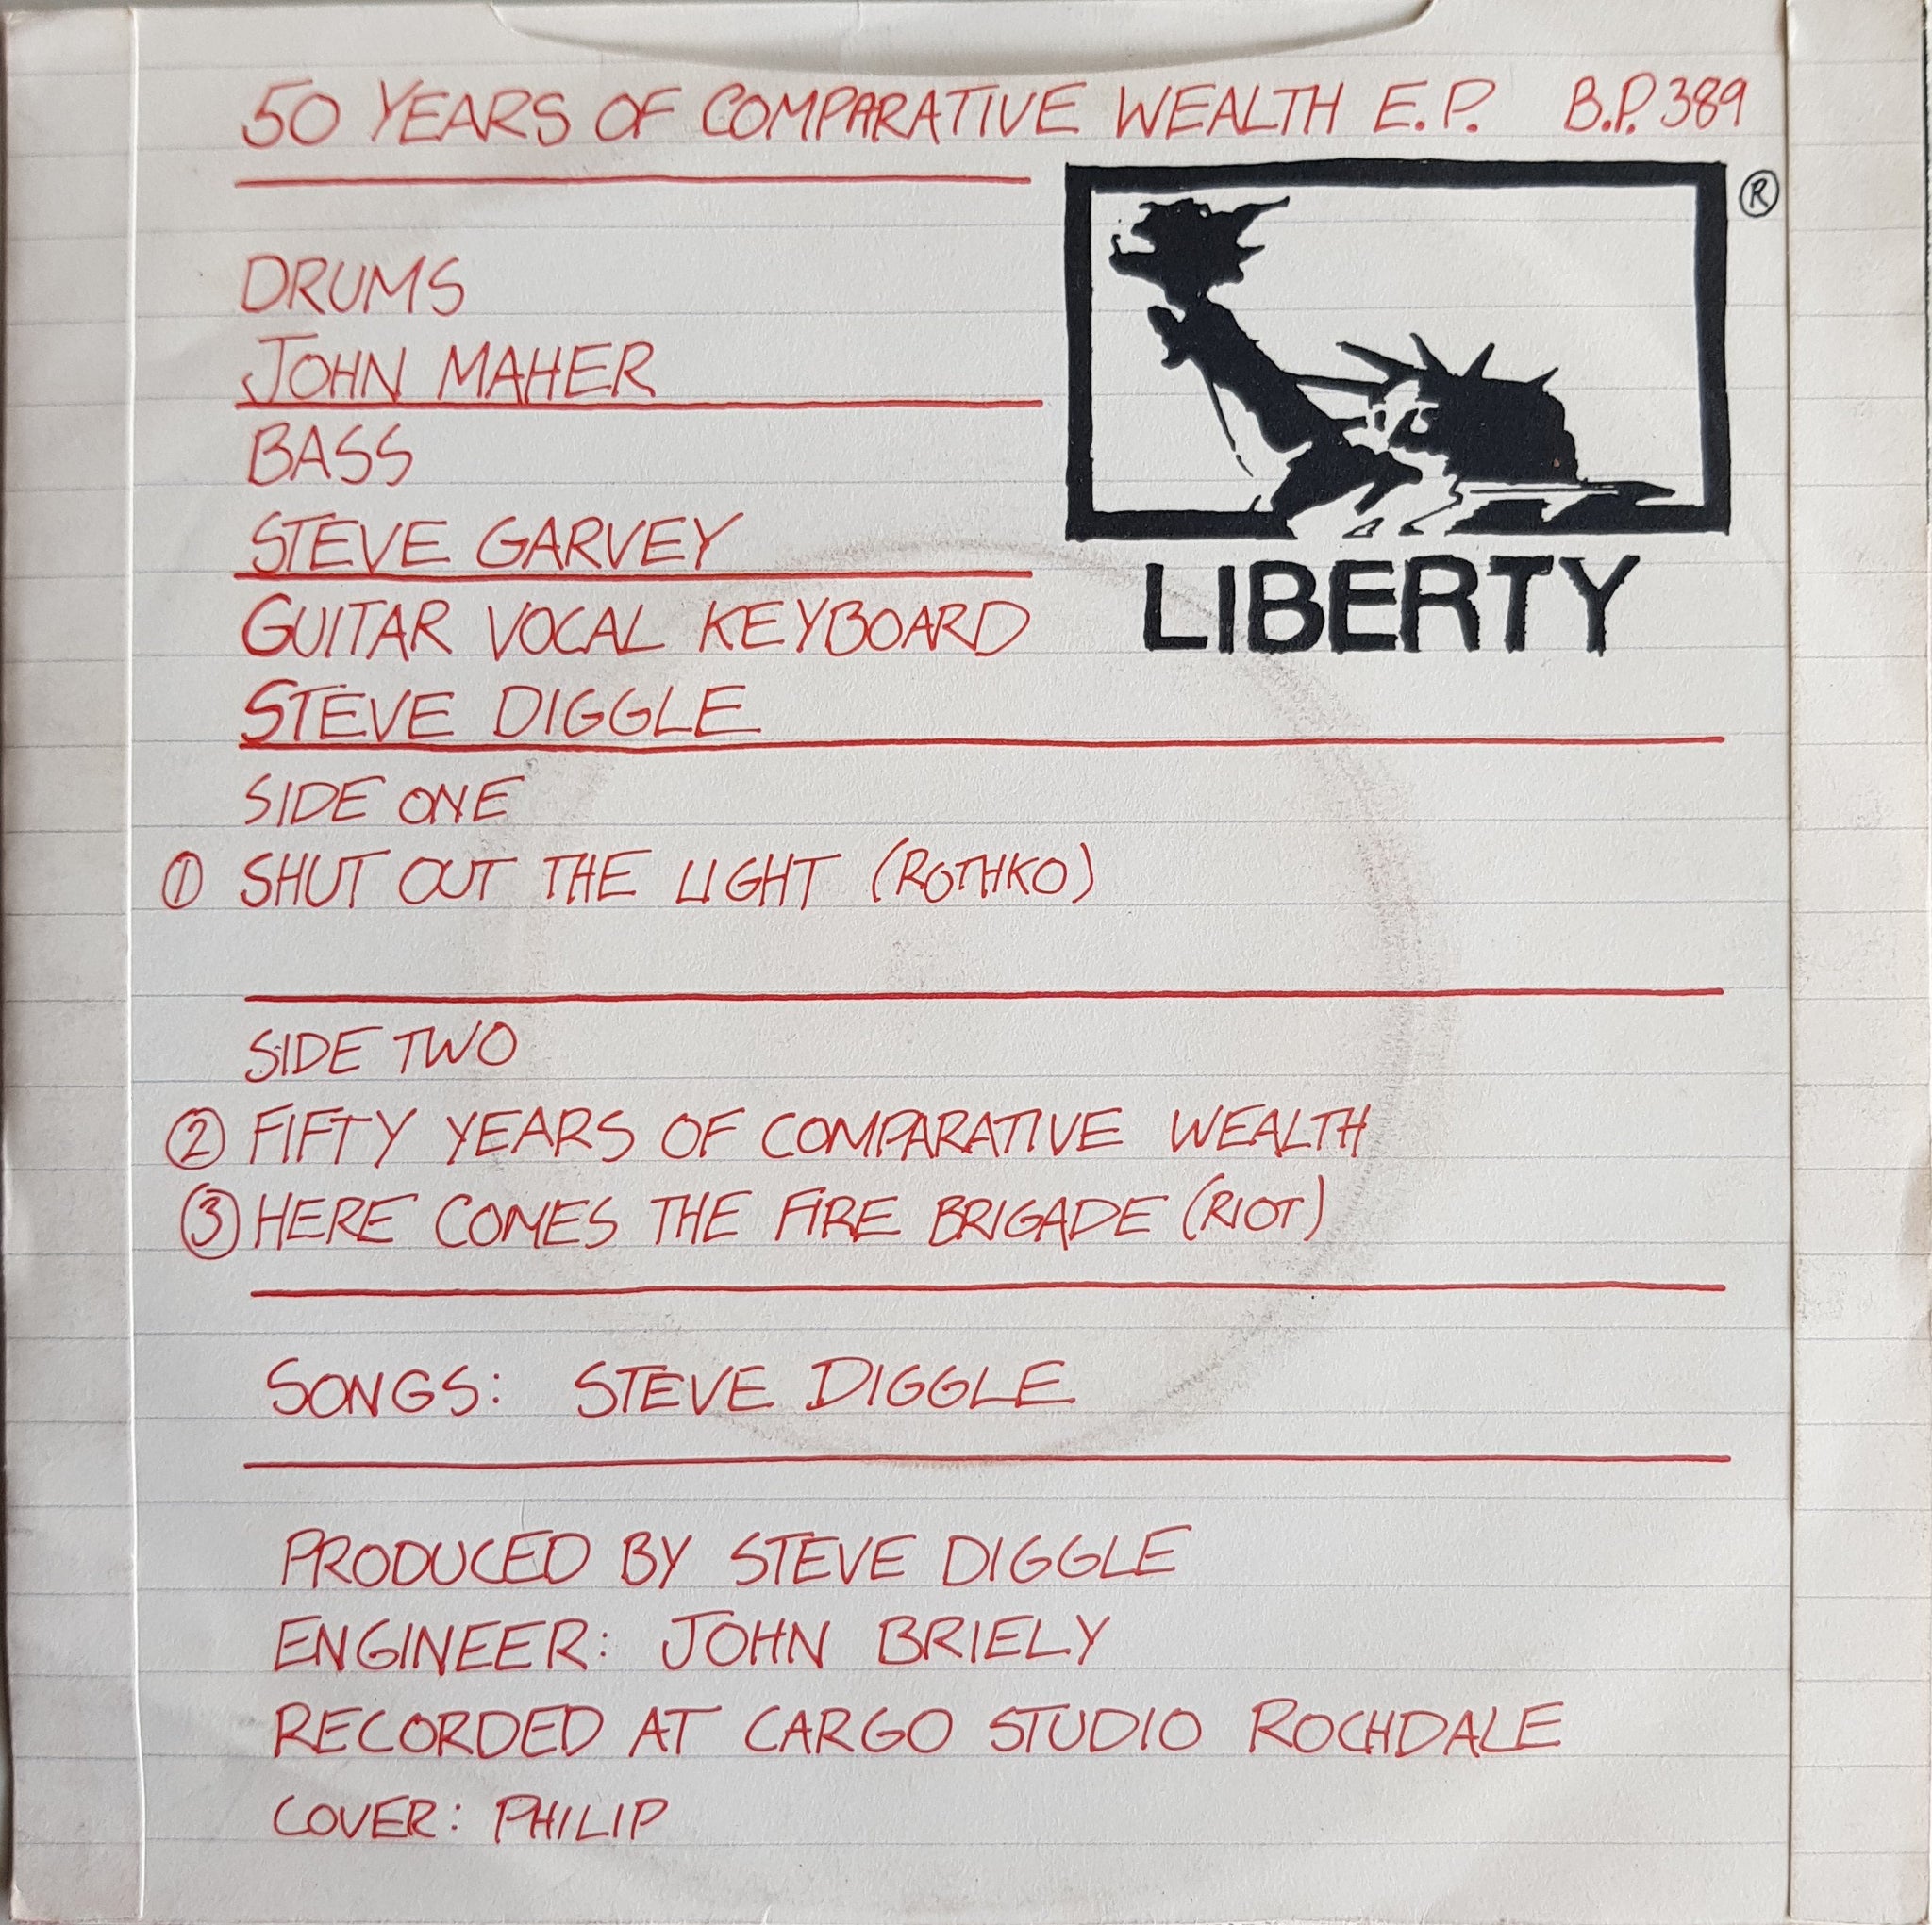 50 YEARS OF COMPARATIVE WEALTH E.P. B.P. 389
®
DRUMS
JOHN MAHER
BASS
STEVE GARVEY
LIBERTY
GUITAR VOCAL KEYBOARD
STEVE DIGGLE
SIDE ONE
① SHUT OUT THE LIGHT (ROTHKO)
SIDE TWO
② FIFTY YEARS OF COMPARATIVE WEALTH
③ HERE COMES THE FIRE BRIGADE (RIOT)
SONGS: STEVE DIGGLE
PRODUCED BY STEVE DIGGLE
ENGINEER: JOHN BRIELY
RECORDED AT CARGO STUDIO ROCHDALE
COVER: PHILIP